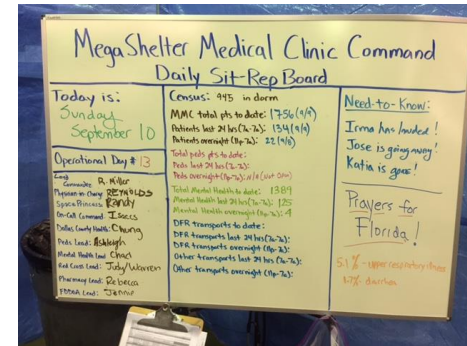 MegaShelter Medical Clinic Command
Daily Sit-Rep Board
Today is:
Sunday
September 10
Operational Day # 13
Commander: R. Miller
Physician-in-Charge: REYNOLDS
Space Princess: Randy
On-Call Command: Isaacs
Dallas County Health: Chung
Peds Lead: Ashleigh
Mental Health Lead: Chad
Red Cross Lead: Judy/Warren
Pharmacy Lead: Rebecca
Lead: Jennie
Census: 445 in dorm
MMC total pts to date: 1756 (9/9)
Patients last 24 hrs (7a-7a): 134 (9/9)
Patients overnight (11p-7a): 22 (9/9)
Total peds pts to date:
Peds last 24 hrs (7a-7a):
Peds overnight (11p-7a): N/A
Total Mental Health to date: 1389
Mental Health last 24 hrs (7a-7a): 125
Mental Health overnight (11p-7a): 4
DFR transports to date:
DFR transports last 24 hrs (7a-7a):
DFR transports overnight (11p-7a):
Other transports last 24 hrs (7a-7a):
Other transports overnight (11p-7a):
Need-to-Know:
Irma has landed!
Jose is going away!
Katia is gone!
Prayers for
Florida!
5.1% - upper respiratory illness
1.7% - diarrhea